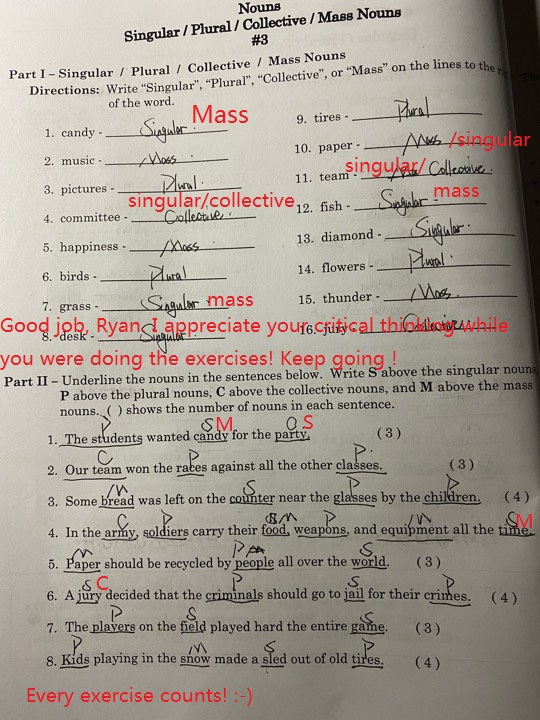 Nouns
Singular / Plural / Collective / Mass Nouns
#3
Part I – Singular / Plural / Collective / Mass Nouns
Directions: Write "Singular", "Plural", "Collective", or "Mass" on the lines to the
of the word.
Mass
1. candy - Singular.
2. music - Mass.
3. pictures - Plural.
singular/collective
4. committee - Collective.
5. happiness - Mass
6. birds - Plural
7. grass - Singular mass
8. desk - Singular.
9. tires - Plural
10. paper - Mass /singular
singular/
11. team - Collective.
12. fish - Singular. mass
13. diamond - Singular.
14. flowers - Plural.
15. thunder - Mass.
16. jury - Collective
Good job, Ryan. I appreciate your critical thinking while
you were doing the exercises! Keep going !
Part II – Underline the nouns in the sentences below. Write S above the singular nouns
P above the plural nouns, C above the collective nouns, and M above the mass
nouns. ( ) shows the number of nouns in each sentence.
P S M C S
1. The students wanted candy for the party. (3)
C P P
2. Our team won the races against all the other classes. (3)
M S P P
3. Some bread was left on the counter near the glasses by the children. (4)
C P M P M S M
4. In the army, soldiers carry their food, weapons, and equipment all the time.
M P S
5. Paper should be recycled by people all over the world. (3)
S C P S P
6. A jury decided that the criminals should go to jail for their crimes. (4)
P S S
7. The players on the field played hard the entire game. (3)
P M S P
8. Kids playing in the snow made a sled out of old tires. (4)
Every exercise counts! :-)